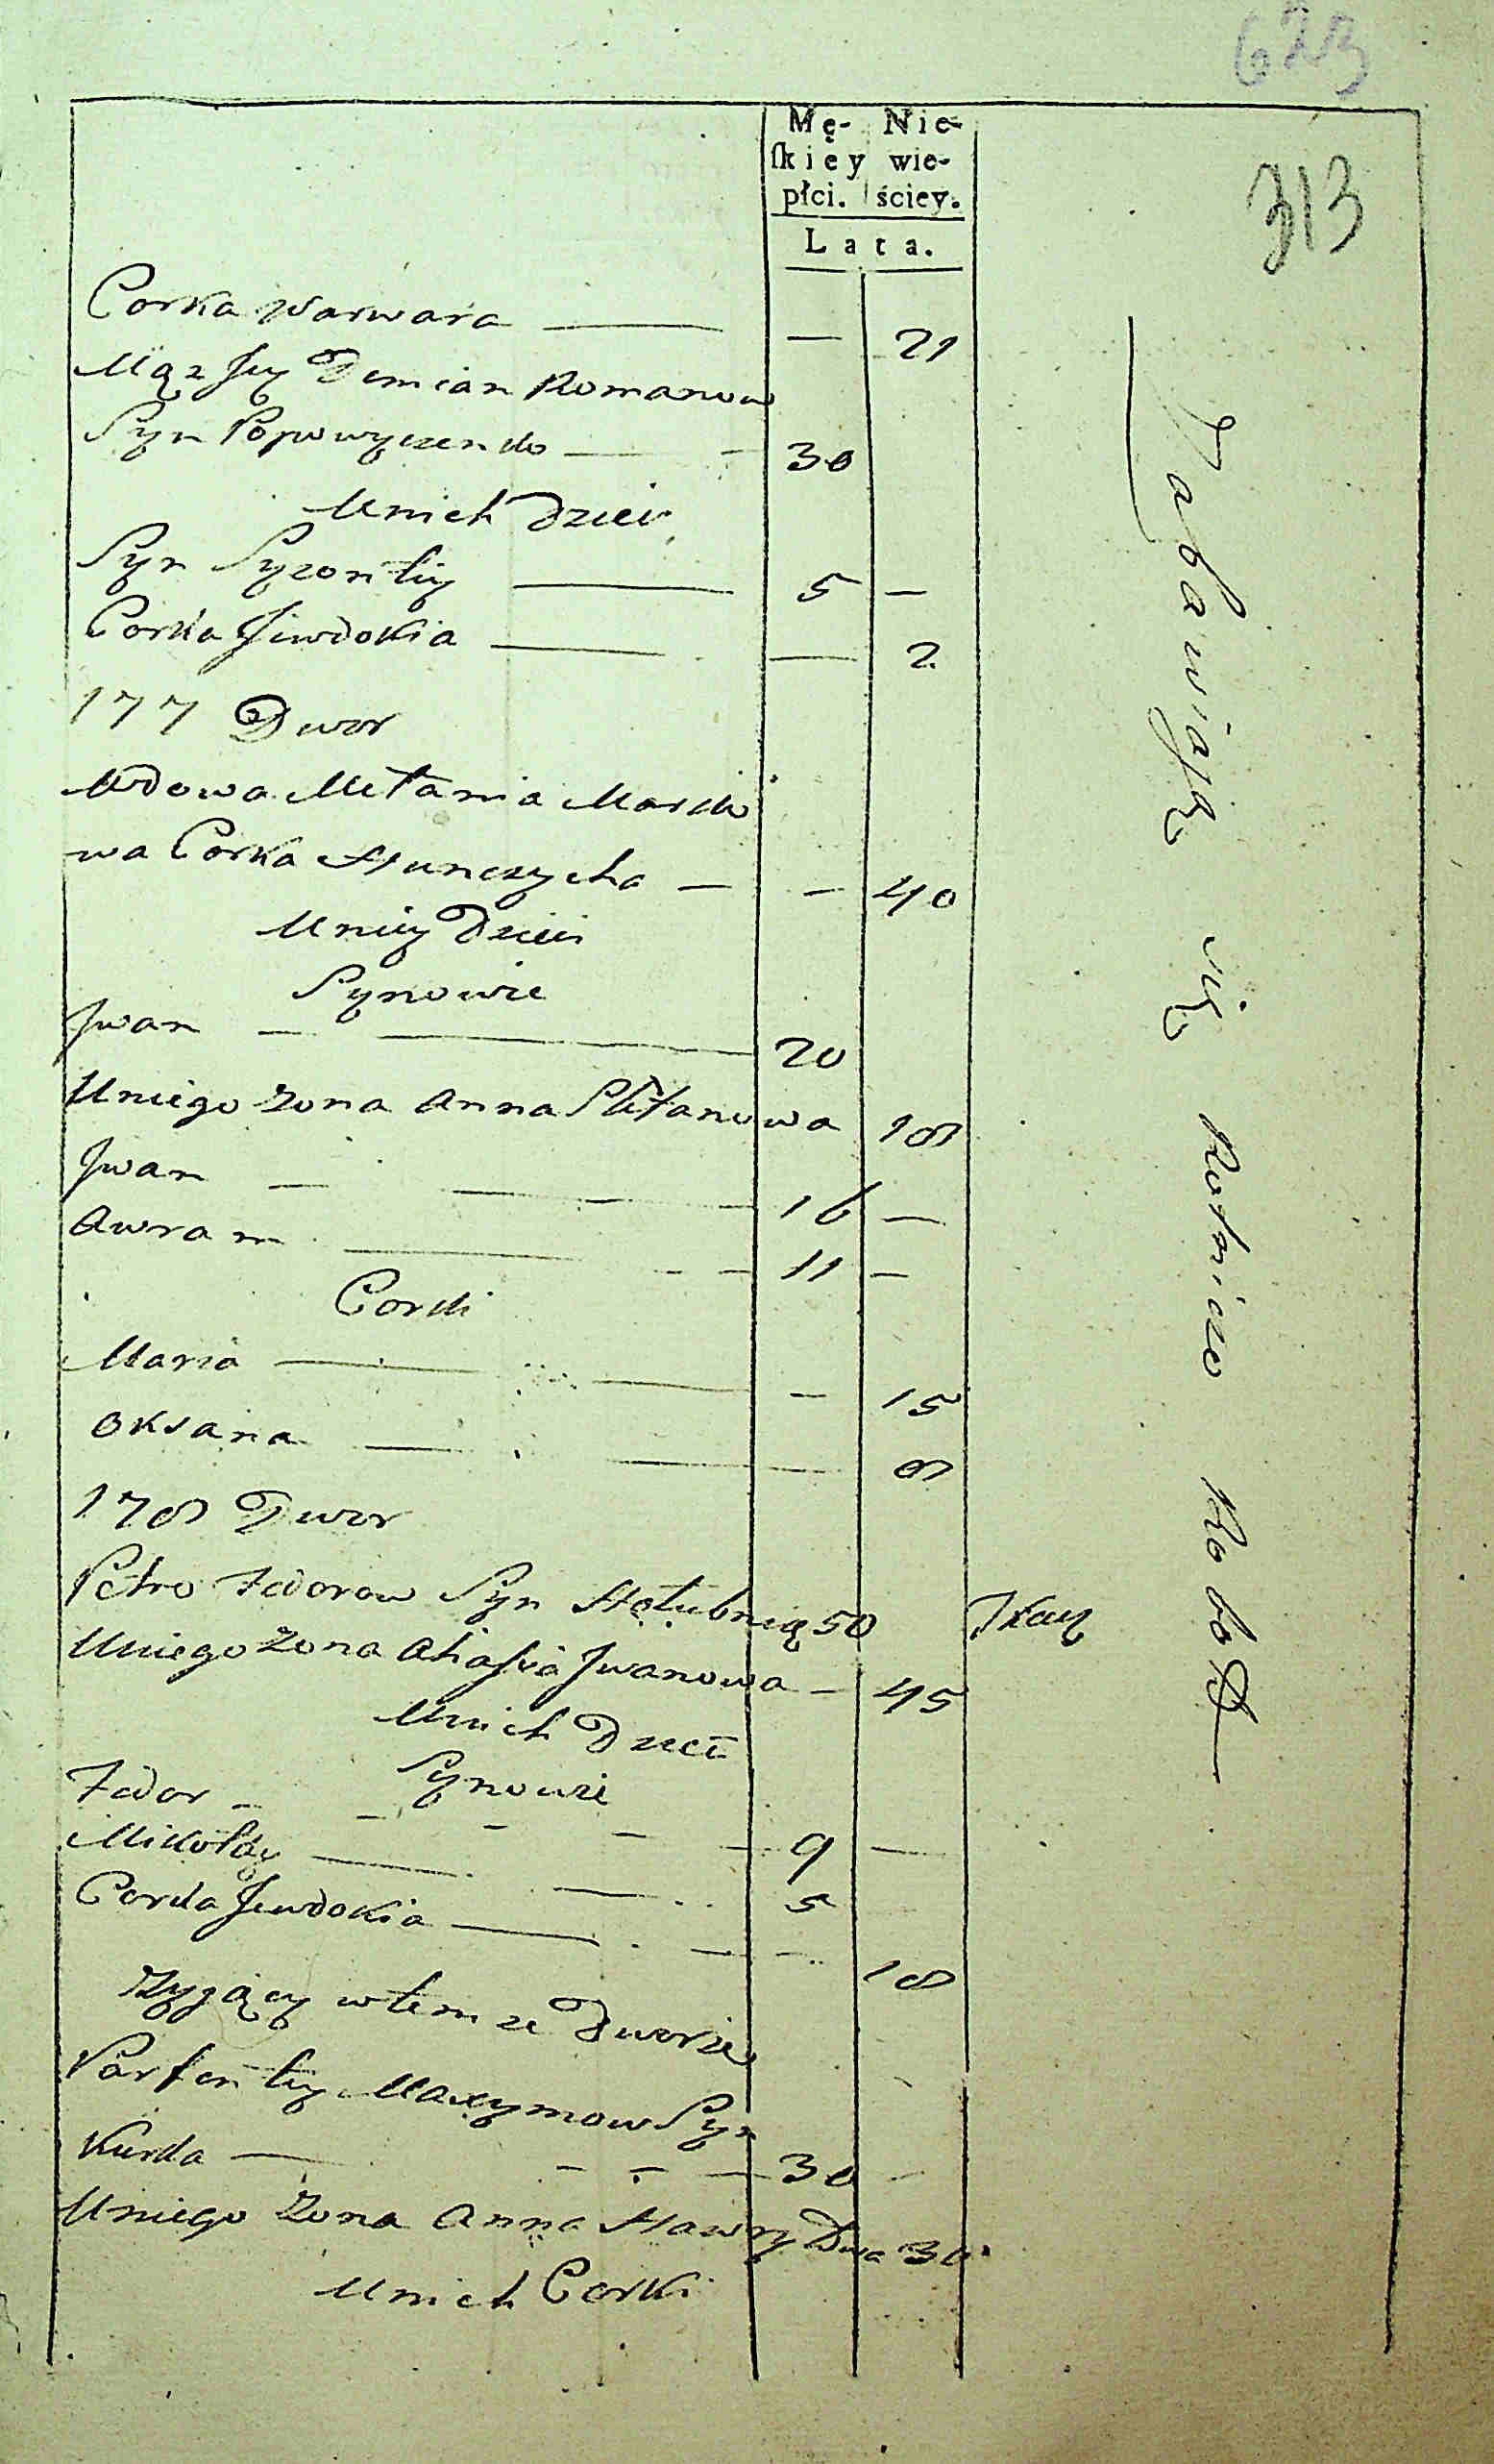 623
313
Mę- Nie-
ſkiey wie-
płci. ściey.
Lata.
Corka Warwara — — 21
Mąz Jey Demian Romanow
Syn Popowyczenko — - 30
Unich Dzieci
Syn Syzontiy — 5 —
Corka Jewdokia — — 2
177 Dwor
Wdowa Mełania Marko
wa Corka Hunczycha — - 40
Uniey Dzieci
Synowie
Jwan — — 20
Uniego zona Anna Stefanowa 18
Jwan — — - - 16 —
Awram — - - 11 —
Corki
Maria — — - 15
Oksana — — — 8
178 Dwor
Petro Fedorow Syn Hołubniczy 50 Tkacz
Uniego zona Ahafia Jwanowa - 45
Unich Dzieci
Synowie
Fedor - - - - - 9 —
Mikołay — — 5
Corka Jewdokia — - - 18
Zyjący w tem ze Dworze
Parfentiy Maxymow Syn
Kurka — - - - 30 -
Uniego Zona Anna Hawryłowa 30
Unich Corki
Zabawiają się Rolniczo Robotą